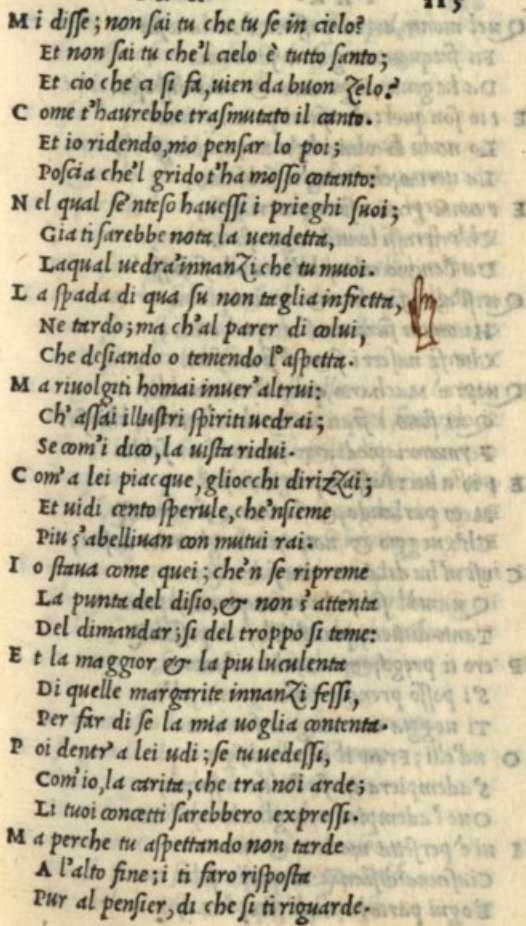 113
M i disse; non sai tu che tu se in cielo?
Et non sai tu che'l cielo è tutto santo;
Et cio che ci si fa, uien da buon zelo?
C ome t'haurebbe trasmutato il canto.
Et io ridendo, mo pensar lo poi;
Poscia che'l grido t'ha mosso cotanto:
N el qual se'nteso hauessi i prieghi suoi;
Gia ti sarebbe nota la uendetta,
Laqual uedra'innanzi che tu muoi.
L a spada di qua su non taglia infretta,
Ne tardo; ma ch'al parer di colui,
Che desiando o temendo l'aspetta.
M a riuolgiti homai inuer'altrui:
Ch'assai illustri spiriti uedrai;
Se com'i dico, la uista ridui.
C om'a lei piacque, gliocchi dirizzai;
Et uidi cento sperule, che'nsieme
Piu s'abelliuan con mutui rai.
I o staua come quei; che'n se ripreme
La punta del disio, & non s'attenta
Del dimandar; si del troppo si teme:
E t la maggior & la piu luculenta
Di quelle margarite innanzi fessi,
Per far di se la mia uoglia contenta.
P oi dentr'a lei udi; se tu uedessi,
Com'io, la carita, che tra noi arde;
Li tuoi concetti sarebbero expressi.
M a perche tu aspettando non tarde
A l'alto fine; i ti faro risposta
Pur al pensier, di che si ti riguarde.